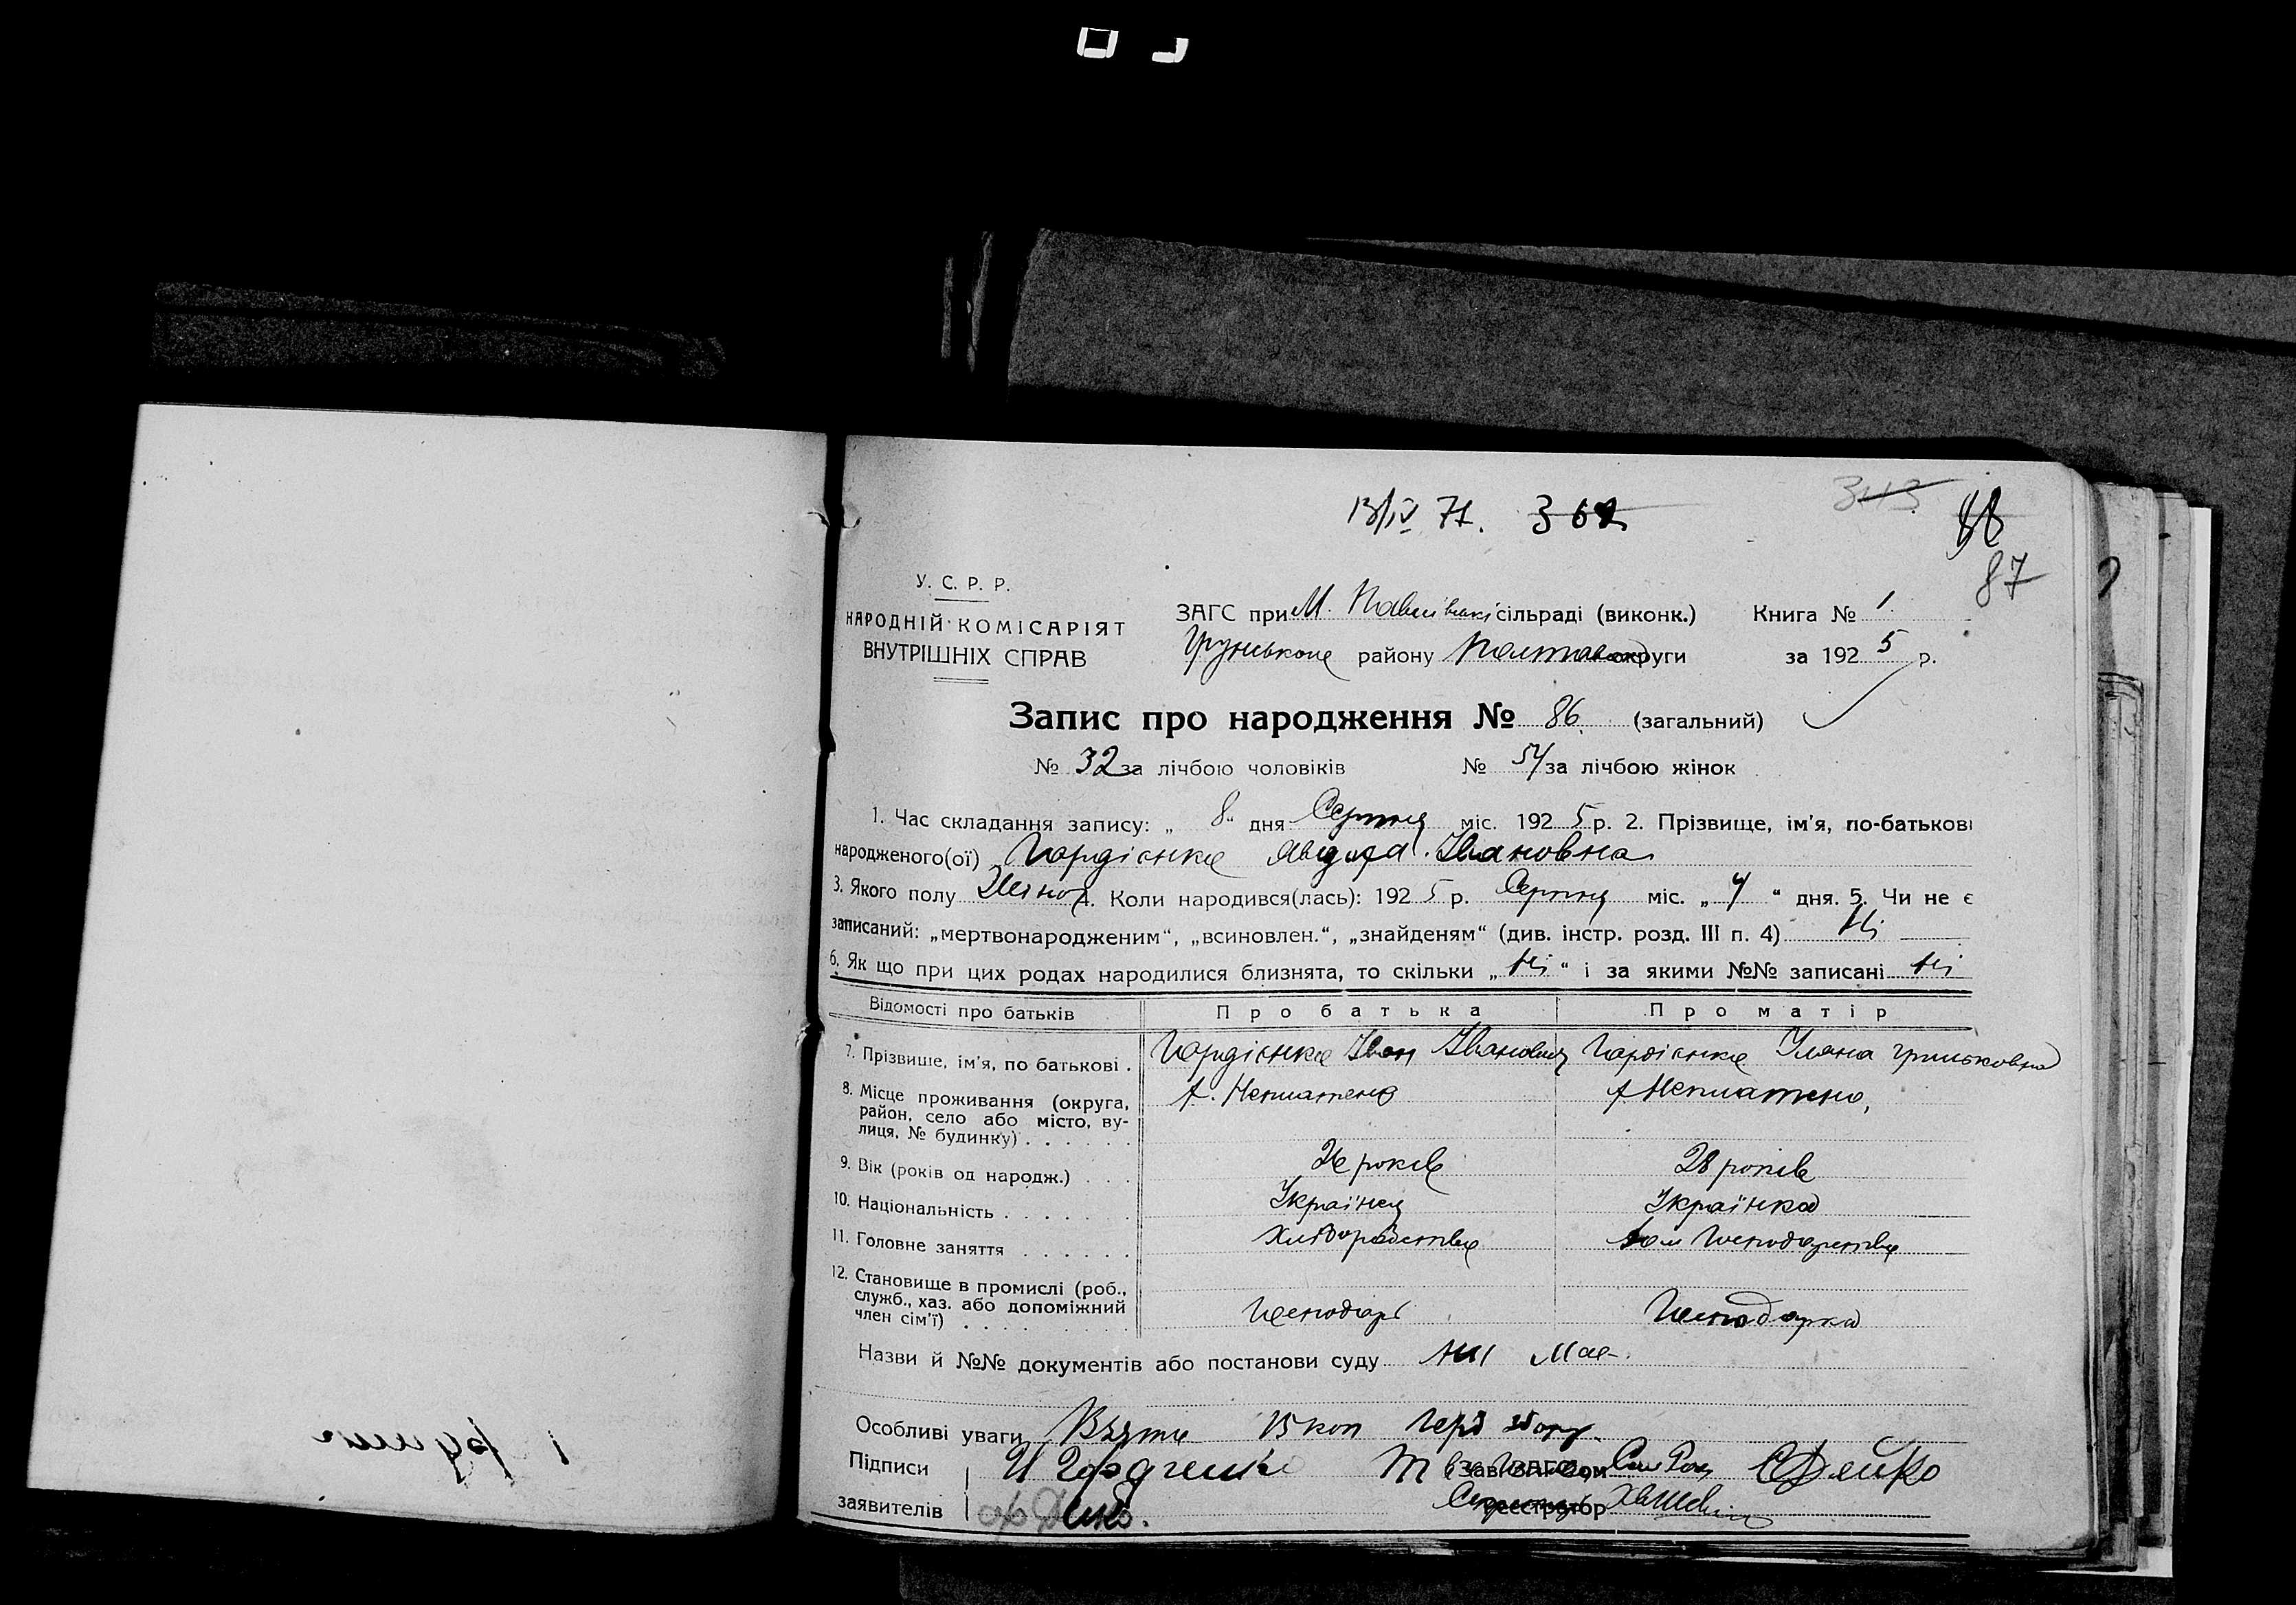 13/IV 71. 362 343
88
87
У. С. Р. Р.
НАРОДНІЙ КОМІСАРІЯТ
ВНУТРІШНІХ СПРАВ
ЗАГС при М. Павлівські сільраді (виконк.) Книга № 1
Грунського району Полтав округи за 1925 р.
Запис про народження № 86 (загальний)
№ 32 за лічбою чоловіків № 54 за лічбою жінок
1. Час складання запису: „ 8 “ дня Серпня міс. 1925 р. 2. Прізвище, ім'я, по-батькові
народженого(ої) Гордієнко Ивановна
3. Якого полу Жіноч 4. Коли народився(лась): 1925 р. Серпня міс. „ 4 “ дня. 5. Чи не є
записаний: „мертвонародженим“, „всиновлен.“, „знайденям“ (див. інстр. розд. III п. 4) Ні
6. Як що при цих родах народилися близнята, то скільки „ Ні “ і за якими №№ записані Ні
Відомості про батьків Про батька Про матір
7. Прізвище, ім'я, по батькові . Гордієнко Иван Иванович Гордієнко Уляна Грицьковна
8. Місце проживання (округа,
район, село або місто, ву-
лиця, № будинку) . . . . . .
9. Вік (років од народж.) . . . 26 років 28 років
10. Національність . . . . . . Українец Українка
11. Головне заняття . . . . . . Хліборобство Дом Господарство
12. Становище в промислі (роб.,
служб., хаз. або допоміжний
член сім'ї) . . . . . . Господарь Господарка
Назви й №№ документів або постанови суду Ни Мае
Особливі уваги Взято 15 коп Герб збору
Підписи И Гордиенко Зав. ЗАГС'ом
заявителів Реєстратор